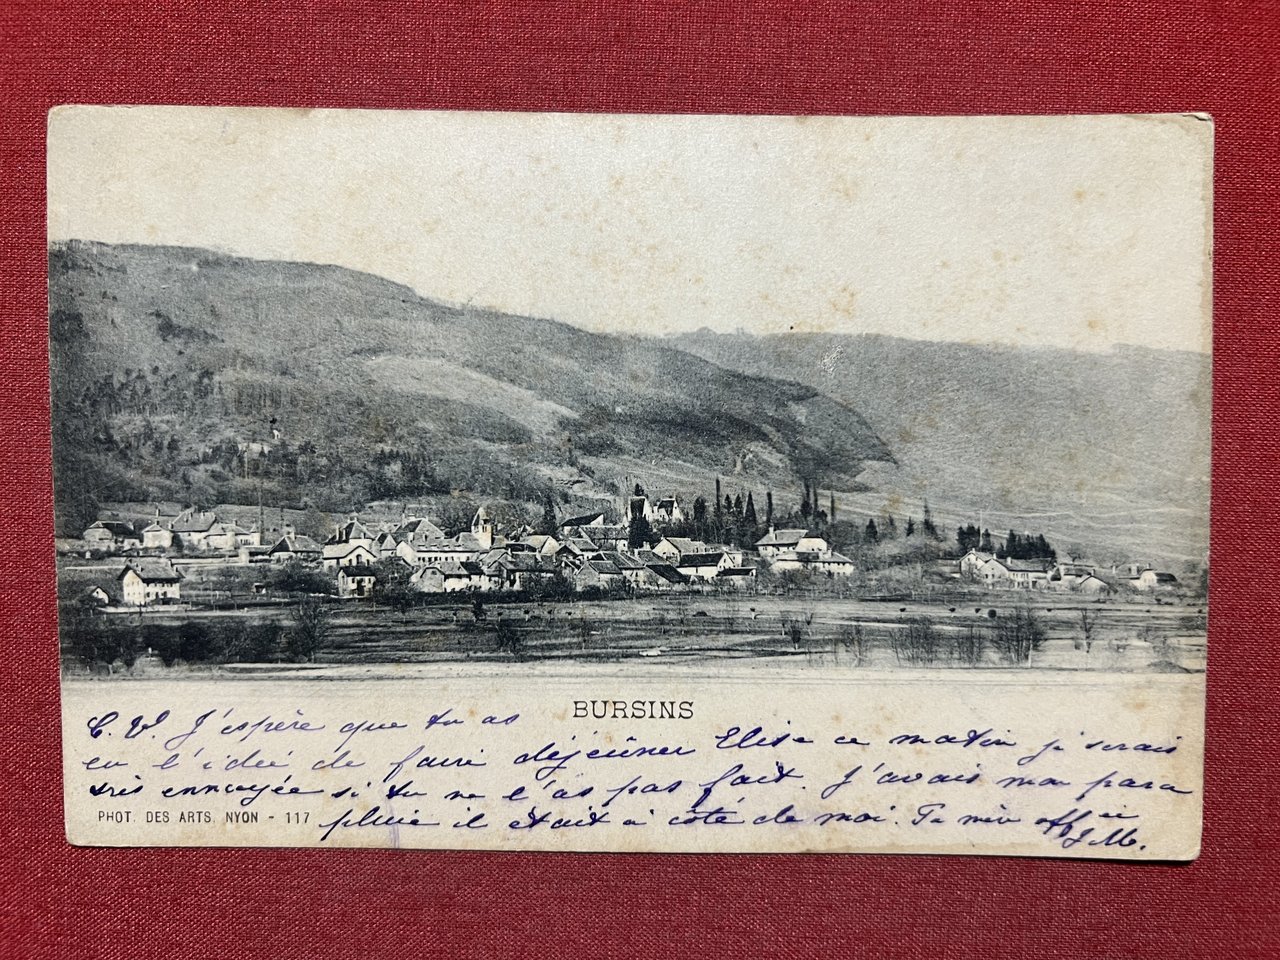 BURSINS
C. V. J'espère que tu as
eu l'idée de faire déjeûner Elise ce matin je serais
très ennuyée si tu ne l'as pas fait. J'avais mon para
pluie il était à côté de moi. Ta mère aff ée
J.M.
PHOT. DES ARTS. NYON - 117